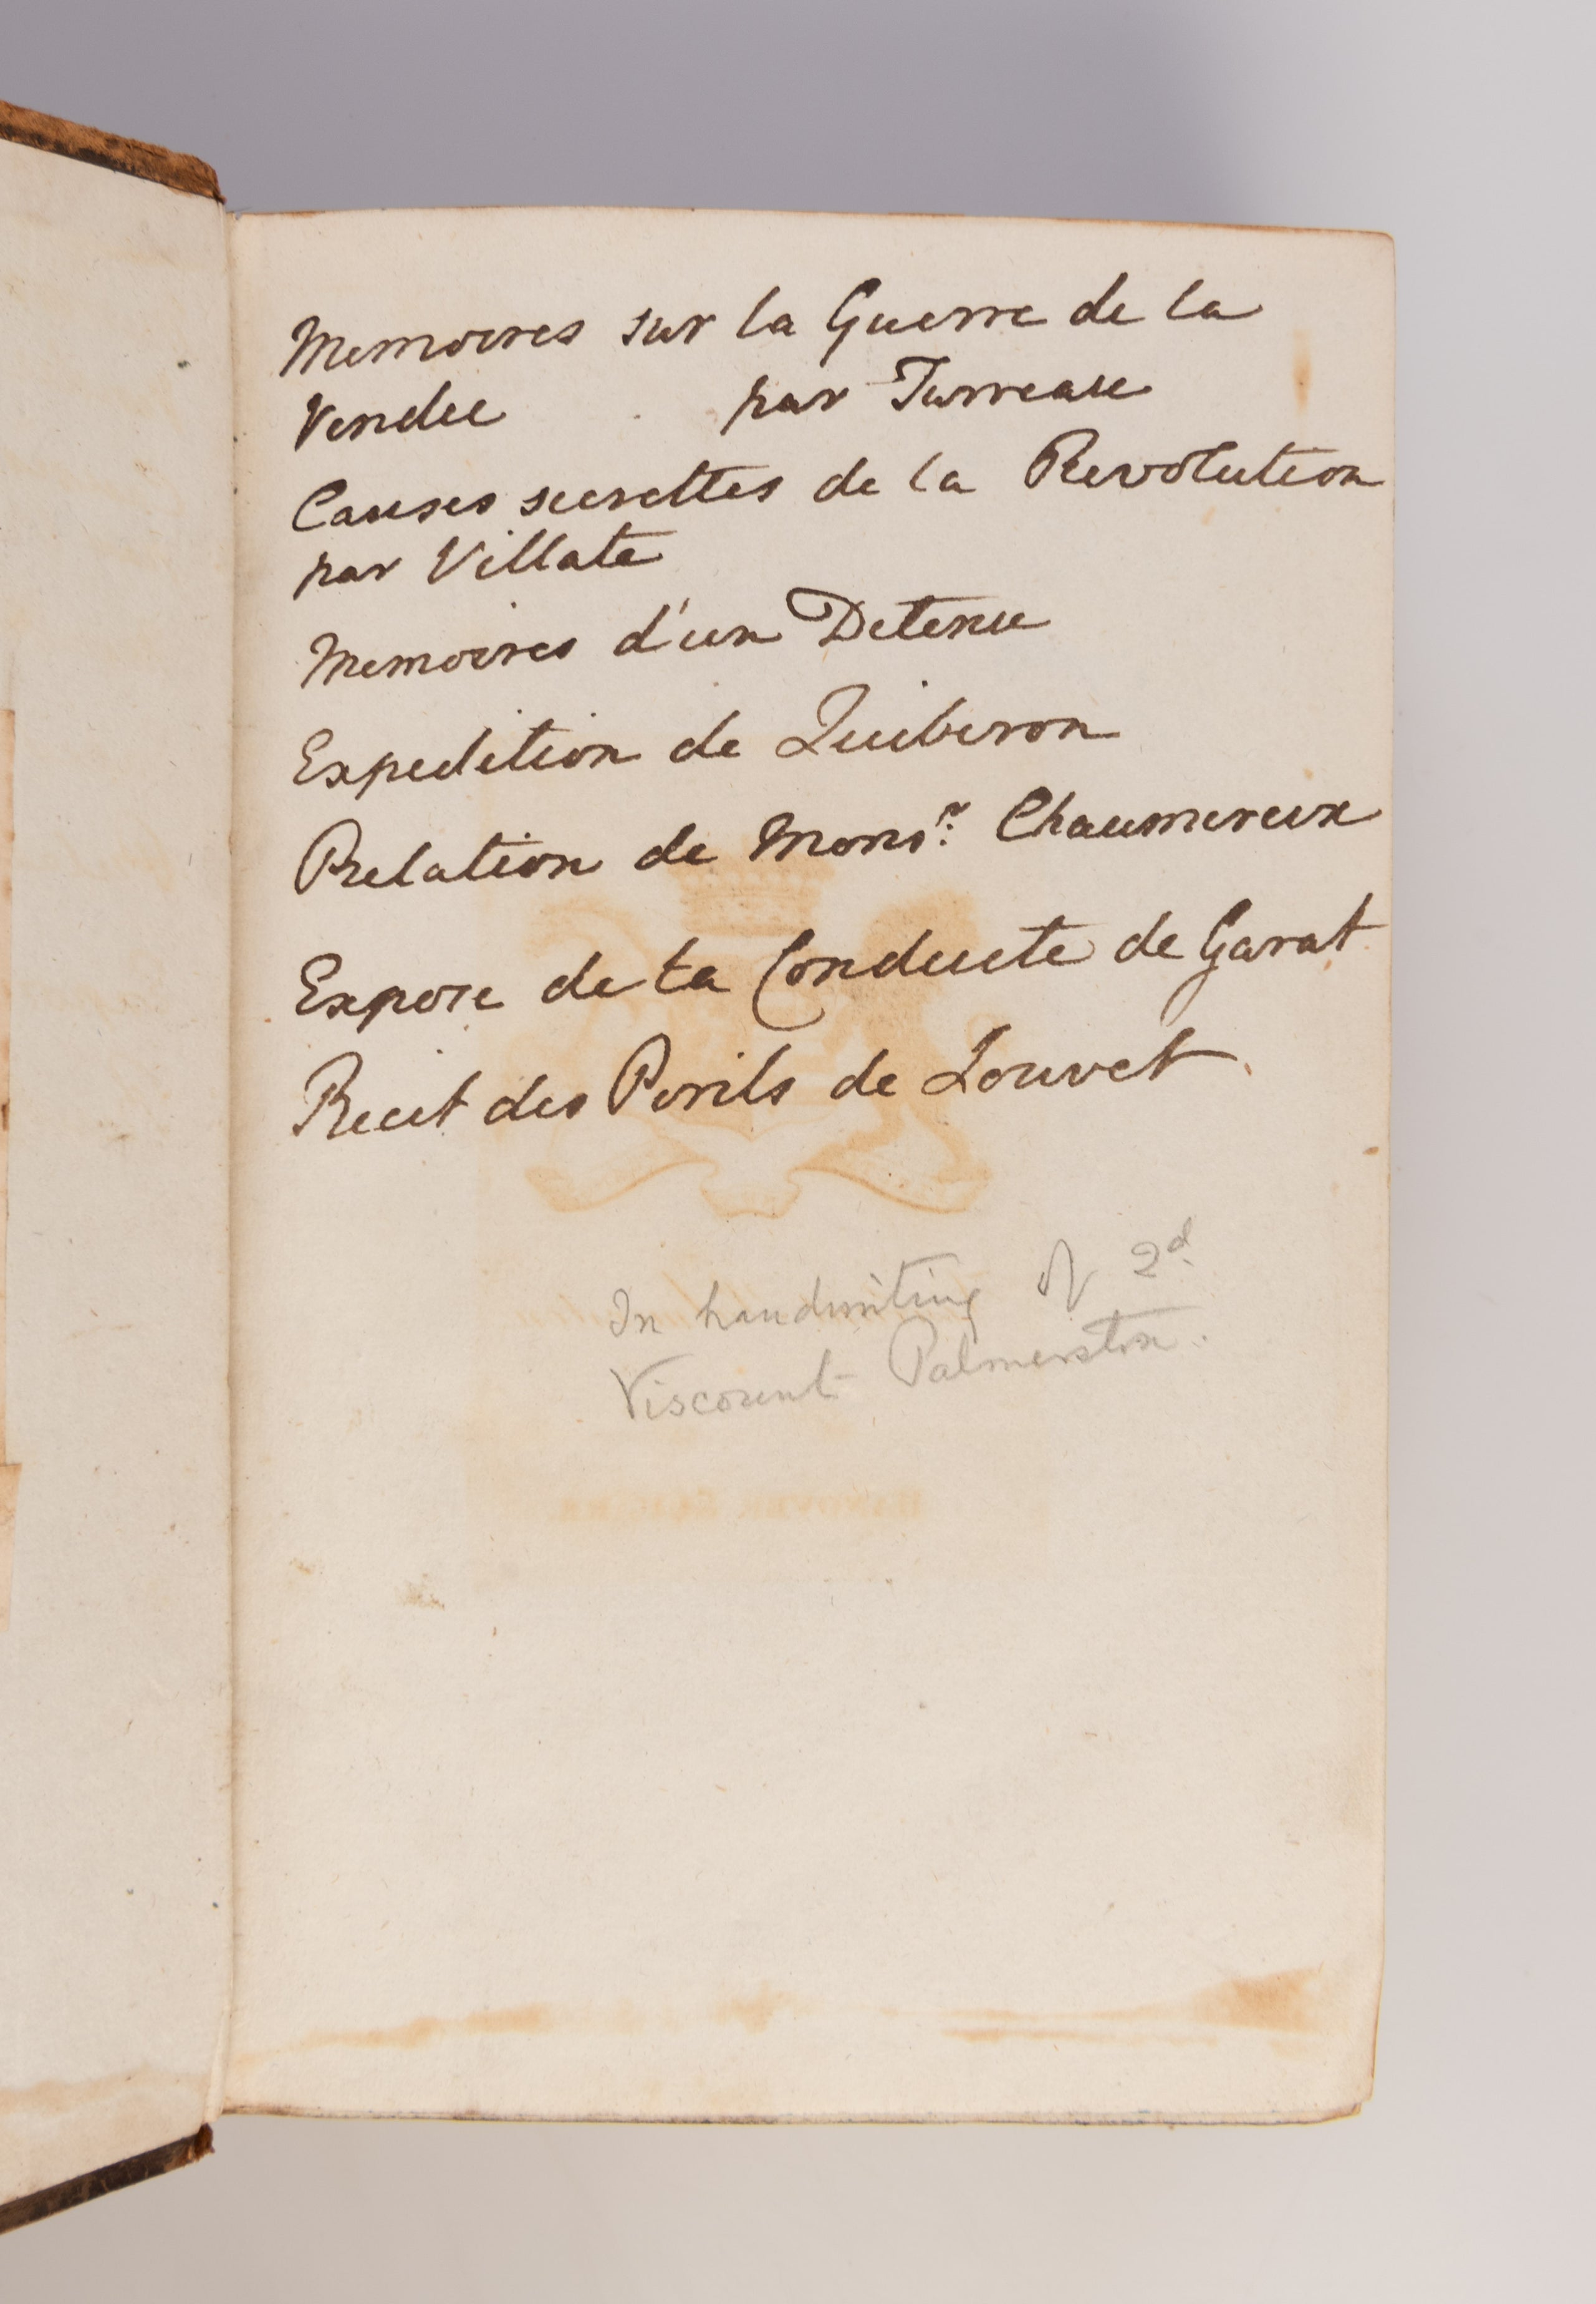 Memoires sur la Guerre de la
Vendee par Turreau
Causes secrettes de la Revolution
par Villate
Memoires d'un Detenu
Expedition de Quiberon
Relation de Monsr. Chaumereux
Expose de la Conduite de Garat
Recit des Perils de Louvet
In handwriting of 2d
Viscount Palmerston.